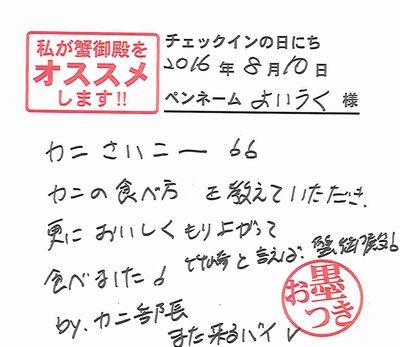 私が蟹御殿を
オススメ
します!!
チェックインの日にち
2016年8月10日
ペンネーム よいうく 様
カニ さいこー 66
カニの食べ方 を教えていただき、
更に おいしく もりよがって
食べました 6
竹崎と言えば、蟹御殿 6
by. カニ部長
また来るバイ レ
お墨つき